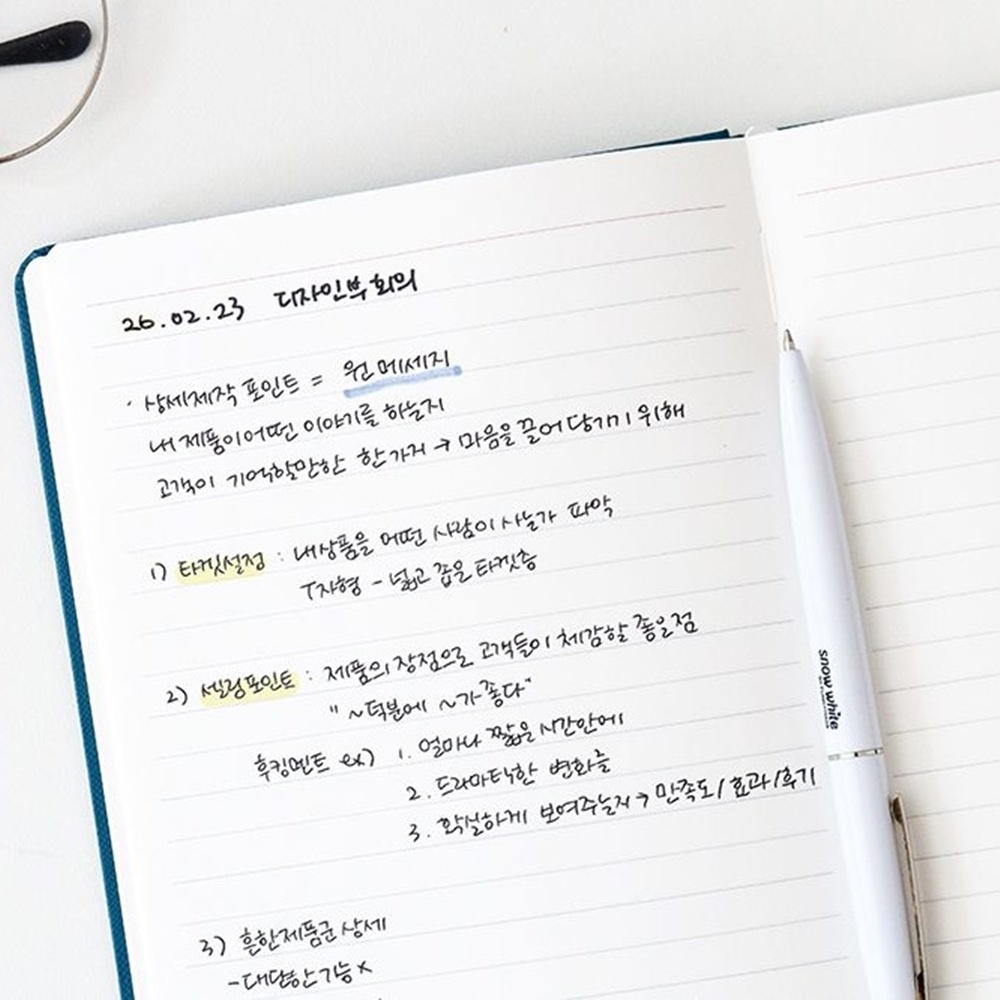 26.02.23 디자인부 회의
· 상세제작 포인트 = 원메세지
내 제품이 어떤 이야기를 하는지
고객이 기억할만한 한가지 → 마음을 끌어당기기 위해
1) 타겟설정 : 내상품을 어떤 사람이 사는가 파악
T자형 - 넓고 좁은 타겟층
2) 셀링포인트 : 제품의 장점으로 고객들이 체감할 좋은점
"~덕분에 ~가 좋다"
후킹멘트 ex) 1. 얼마나 짧은 시간안에
2. 드라마틱한 변화를
3. 확실하게 보여주는지 → 만족도/효과/후기
3) 흔한제품군 상세
- 대단한기능 x
snow white